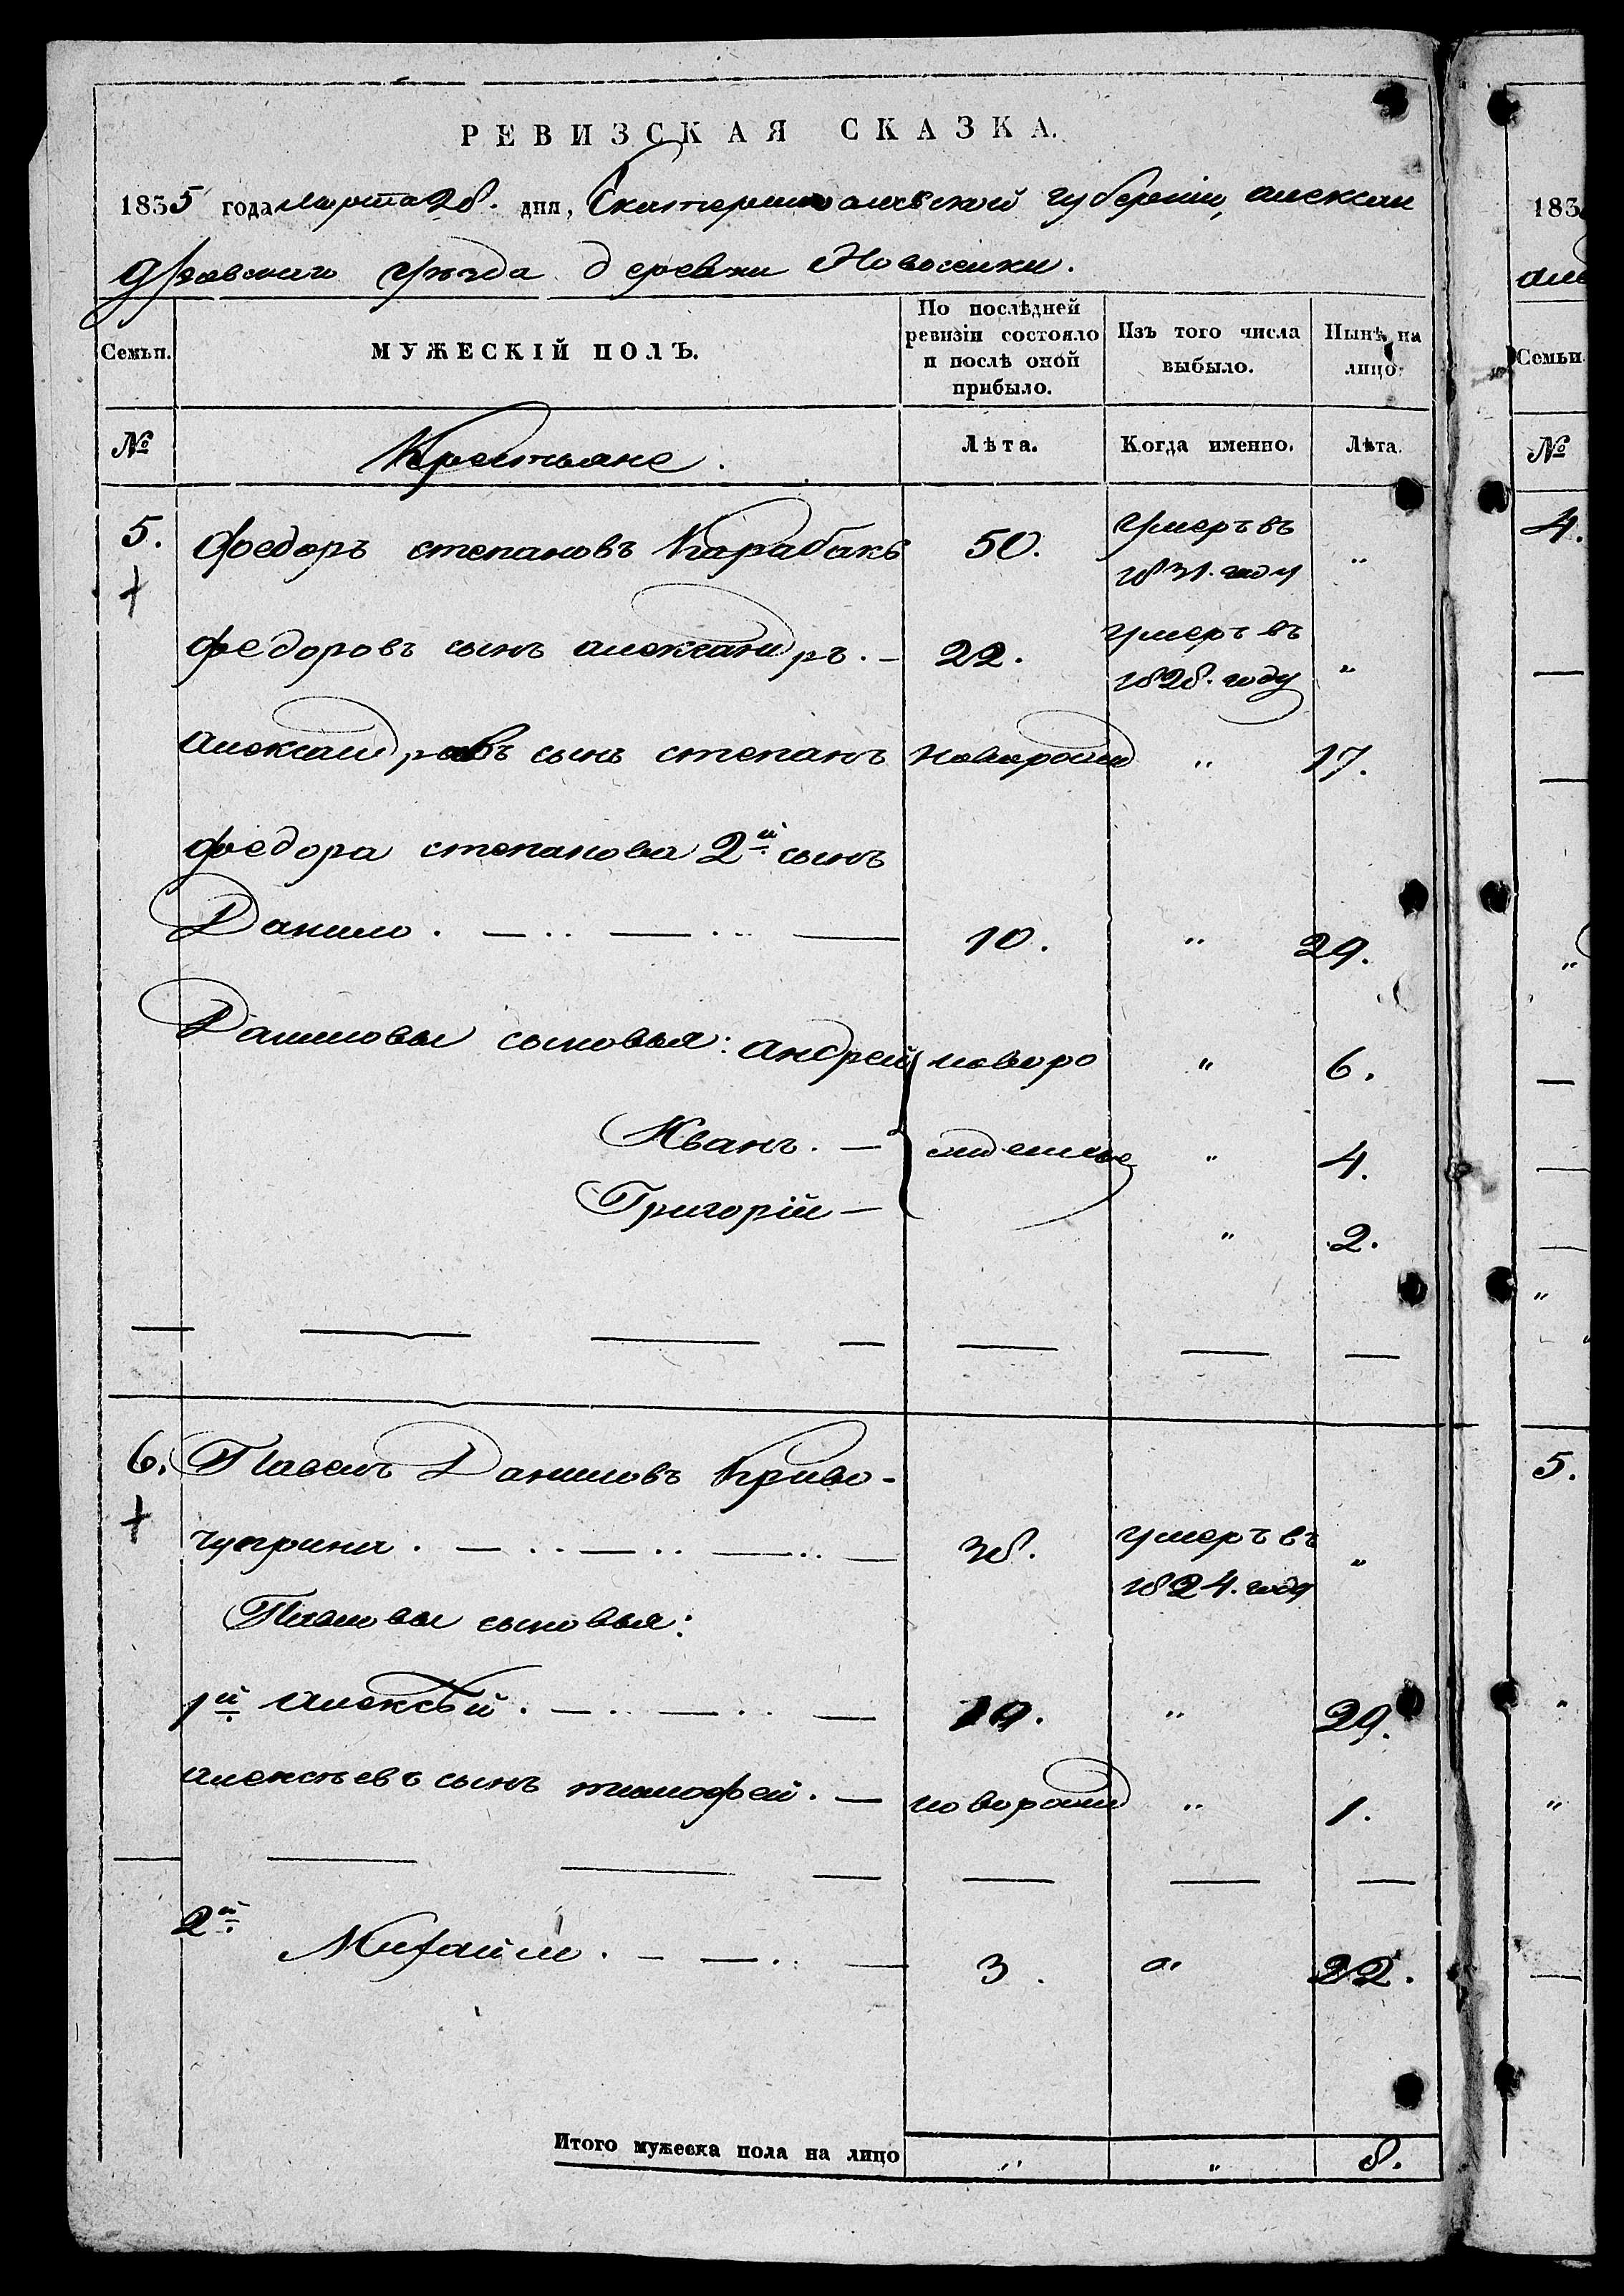 РЕВИЗСКАЯ СКАЗКА.
1835 года марта 28. дня, Екатеринославской губерніи, алексан
дровскаго уѣзда деревни Новоселки.
Семьи. МУЖЕСКІЙ ПОЛЪ. По послѣдней ревизіи состояло и послѣ оной прибыло. Изъ того числа выбыло. Нынѣ на лицо.
№ Крестьяне. Лѣта. Когда именно. Лѣта.
5. Федоръ степановъ Карабакъ 50. умеръ въ 1831. году "
федоровъ сынъ александръ. — 22. умеръ въ 1828. году "
александровъ сынъ степанъ новорожд " 17.
федора степанова 2й сынъ
Данило. — .. — .. — 10. " 29.
Даниловы сыновья: андрей новоро " 6.
Иванъ. — жденные " 4.
Григорій — " 2.
6. Павелъ Даниловъ Криво-
чуприна. — .. — .. — .. — 38. умеръ въ 1824. году "
Павловы сыновья:
1й алексѣй. — .. — .. — 10. " 29.
алексѣевъ сынъ тимофей. — новорожд " 1.
2й Михайло. — — .. — 3. " 22.
Итого мужеска пола на лицо " " 8.
183
але
Семьи
№
4.
5.